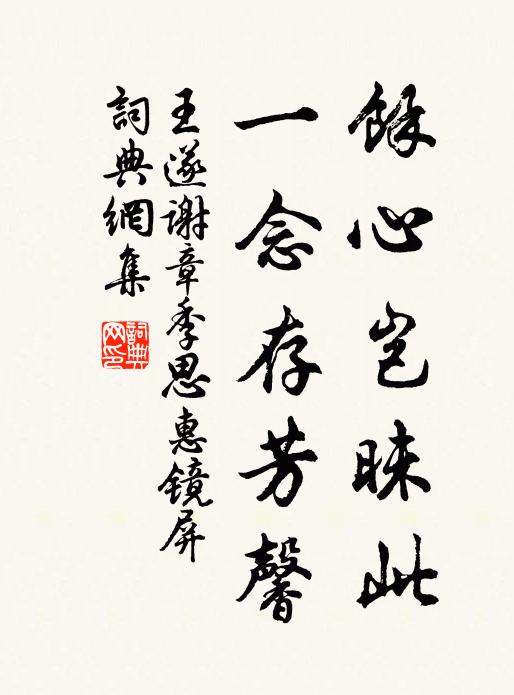 餘心豈昧此
一念存芳馨
王遂謝章季思惠镜屏
詞典網集
詞典網印